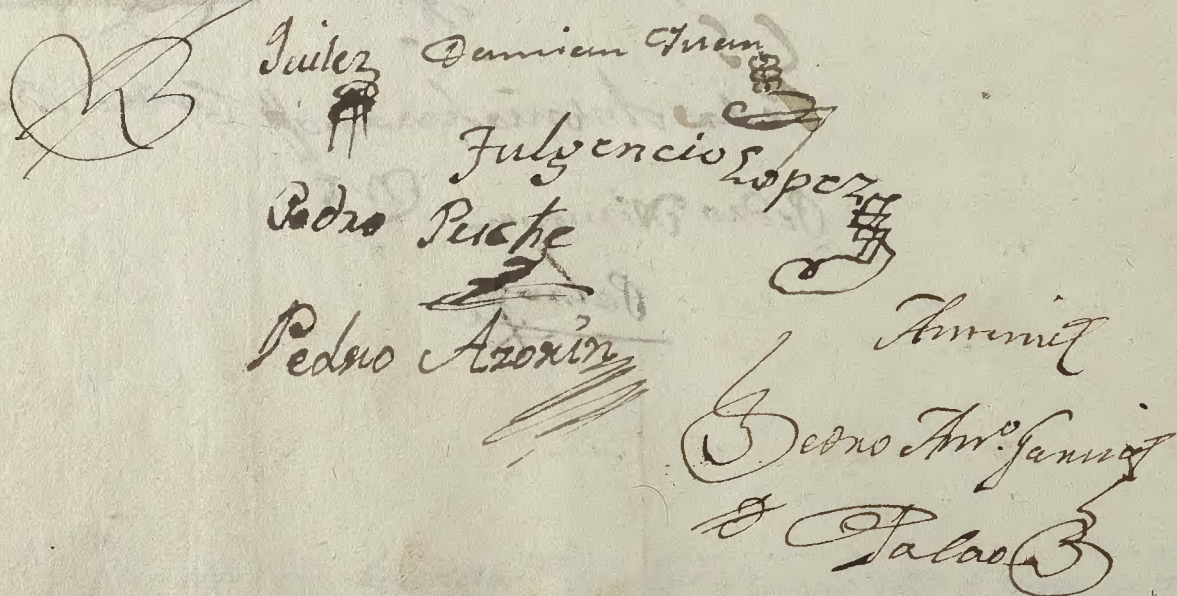 Juilez Damian Juan
Fulgencio Lopez
Pedro Puche
Pedro Azorin
Ante mi
Pedro Anto. Garcia
D Palao